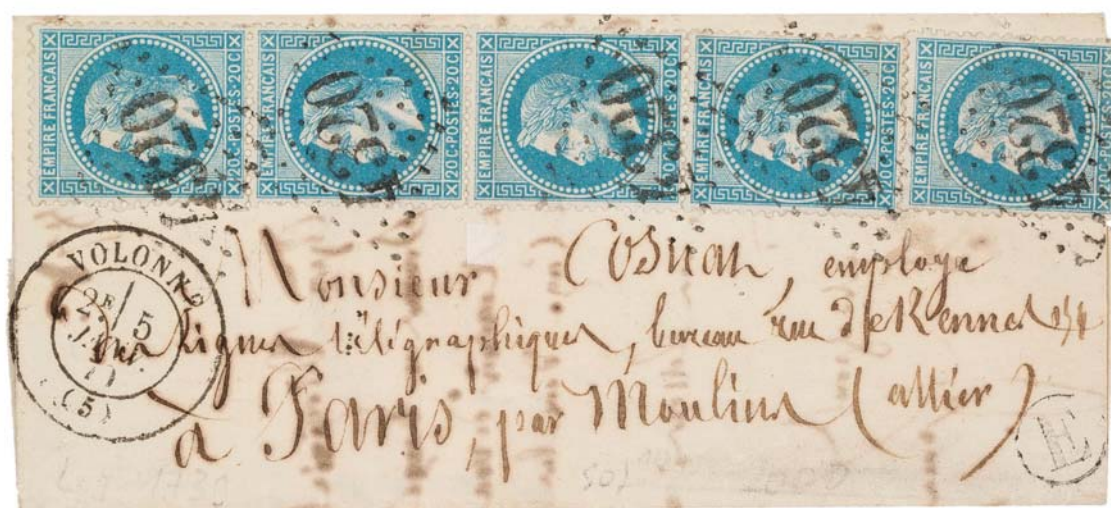 EMPIRE FRANÇAIS 20C-POSTES-20C
EMPIRE FRANÇAIS 20C-POSTES-20C
EMPIRE FRANÇAIS 20C-POSTES-20C
EMPIRE FRANÇAIS 20C-POSTES-20C
EMPIRE FRANÇAIS 20C-POSTES-20C
4320
4320
4320
4320
4320
VOLONNE
2E 5
JANV.
71
(5)
Monsieur Cosnan, employé
des Lignes télégraphiques, bureau rue de Rennes 154
à Paris, par Moulins (allier)
E